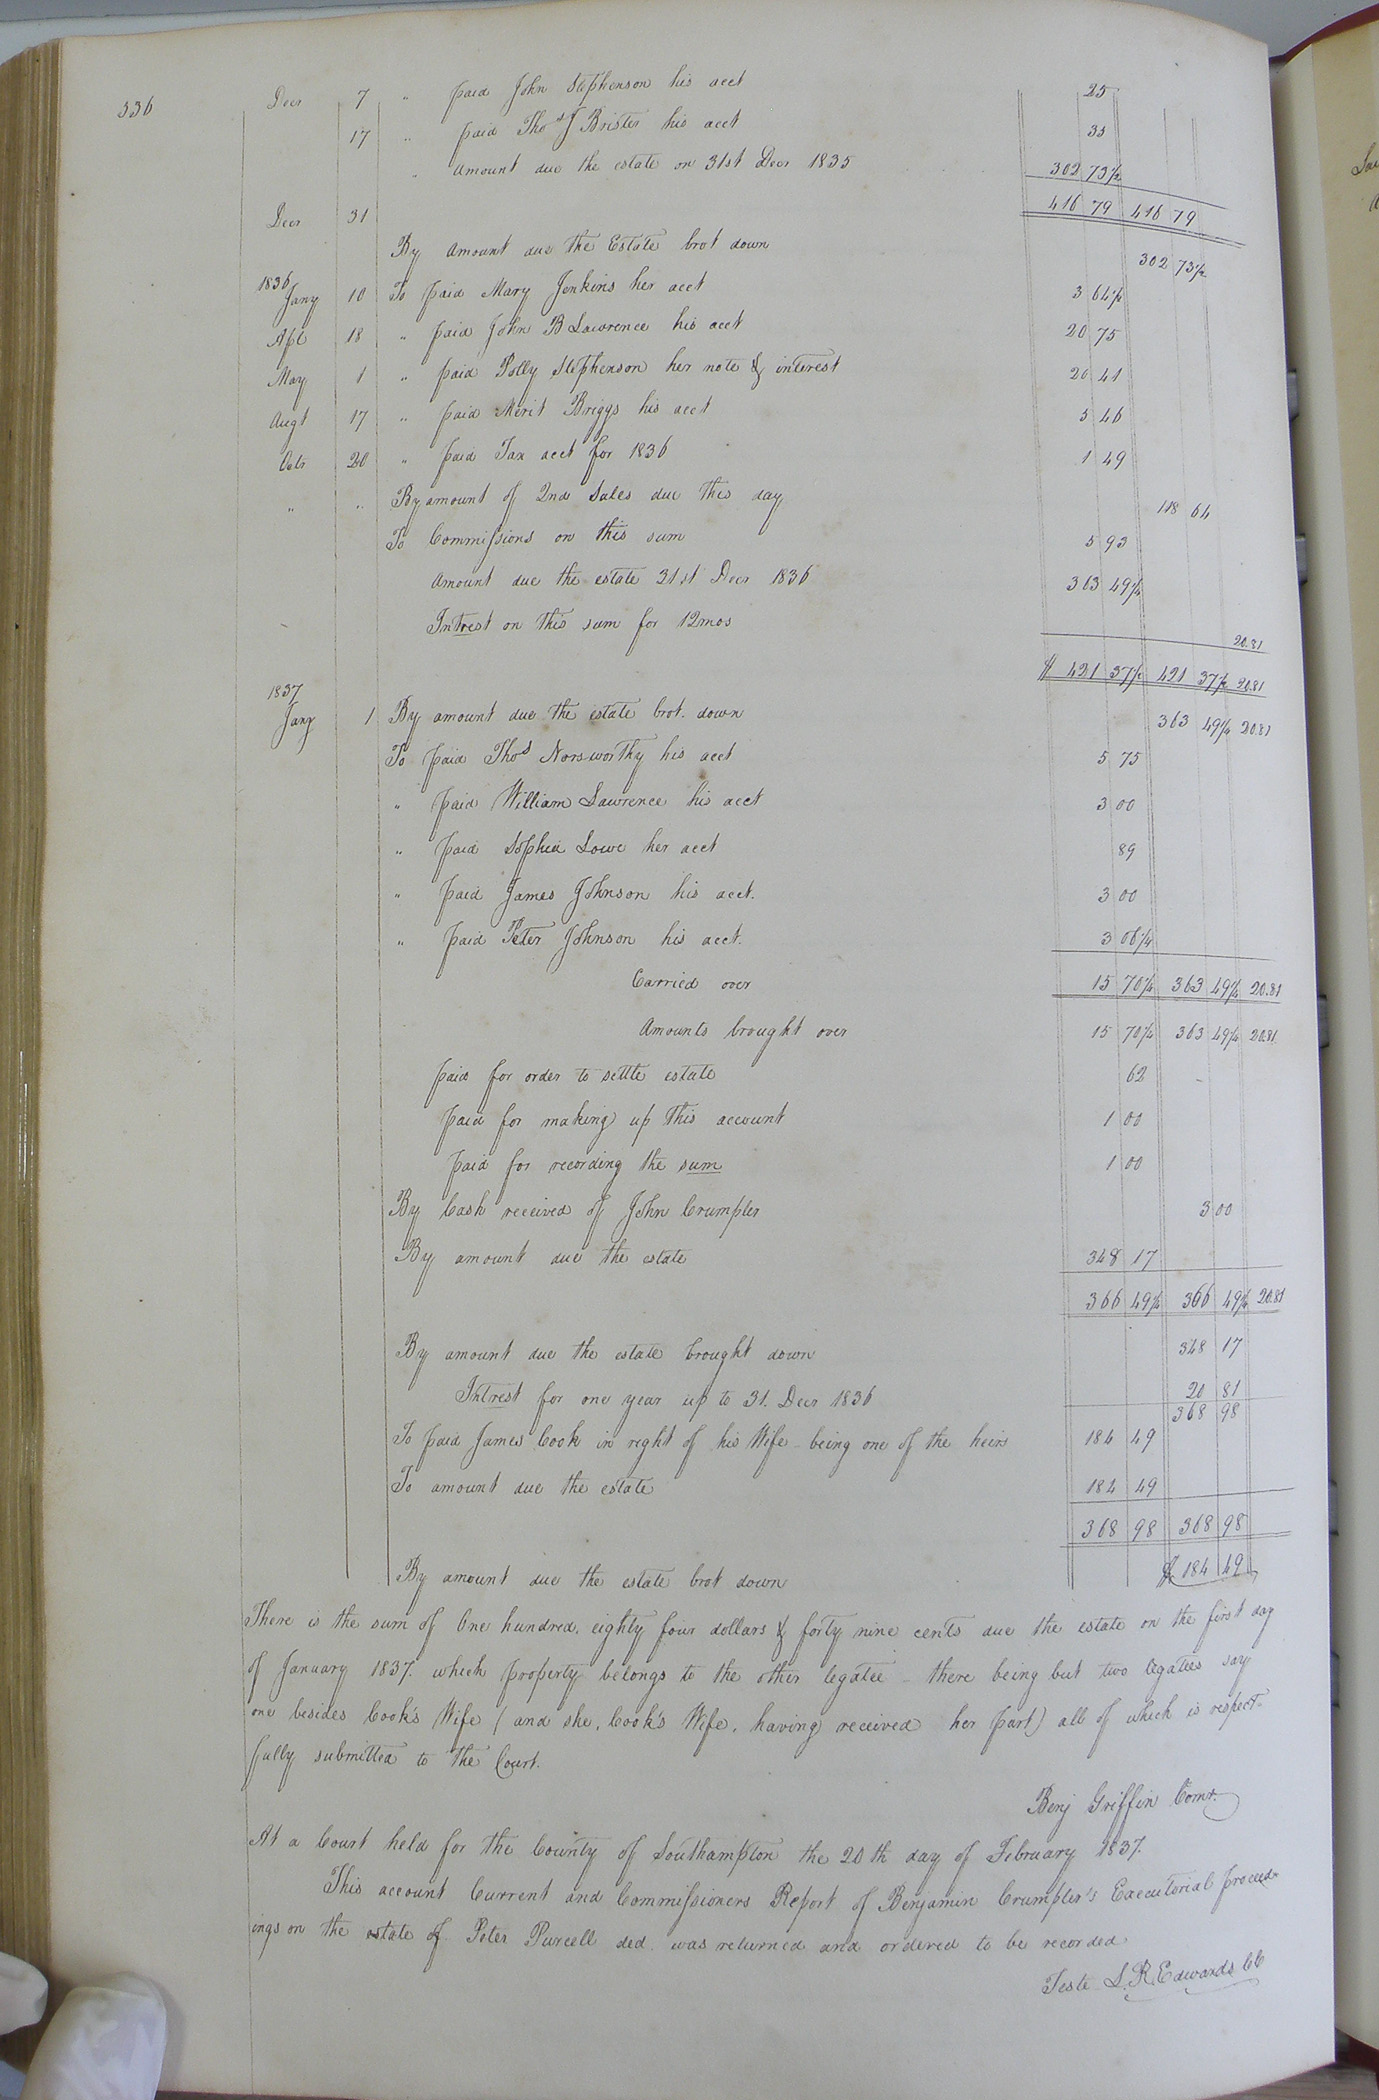 336
Decr 7 " paid John Stephenson his acct 25
17 " paid Thos J Brister his acct 35
" Amount due the estate on 31st Decr 1835 302 73 1/2
Decr 31 416 79 416 79
By Amount due the Estate brot down 302 73 1/2
1836
Jany 10 To paid Mary Jenkins her acct 3 64 1/4
Apl 18 " paid John B Lawrence his acct 20 75
May 1 " paid Polly Stephenson her note & interest 20 41
Augt 17 " paid Merit Briggs his acct 5 46
Octr 20 " paid Tax acct for 1836 1 49
" " By amount of 2nd Sales due this day 118 64
To Commissions on this sum 5 93
Amount due the estate 31st Decr 1836 363 49 1/4
Intrest on this sum for 12mos 20.81
$ 421 37 1/2 421 37 1/2 20.81
1837
Jany 1 By amount due the estate brot. down 363 49 1/4 20.81
To paid Thos Norsworthy his acct 5 75
" paid William Lawrence his acct 3 00
" paid Sophia Lowe her acct 89
" paid James Johnson his acct. 3 00
" paid Peter Johnson his acct. 3 06 1/4
Carried over 15 70 1/4 363 49 1/4 20.81
Amounts brought over 15 70 1/4 363 49 1/4 20.81
paid for order to settle estate 62
paid for making up this account 1 00
paid for recording the sum 1 00
By Cash received of John Crumpler 3 00
By amount due the estate 348 17
366 49 1/4 366 49 1/4 20.81
By amount due the estate brought down 348 17
Intrest for one year up to 31. Decr 1836 20 81
368 98
To paid James Cook in right of his Wife - being one of the heirs 184 49
To amount due the estate 184 49
368 98 368 98
By amount due the estate brot down $ 184 49
There is the sum of One hundred, eighty four dollars & forty nine cents due the estate on the first day
of January 1837. which property belongs to the other legatee - there being but two legatees say
one besides Cook's Wife (and she, Cook's Wife, having received her part) all of which is respect-
fully submitted to the Court.
Benj Griffin Comr.
At a Court held for the County of Southampton the 20th day of February 1837.
This account Current and Commissioners Report of Benjamin Crumpler's Executorial proceed-
ings on the estate of Peter Purcell ded. was returned and ordered to be recorded
Teste L. R. Edwards CC